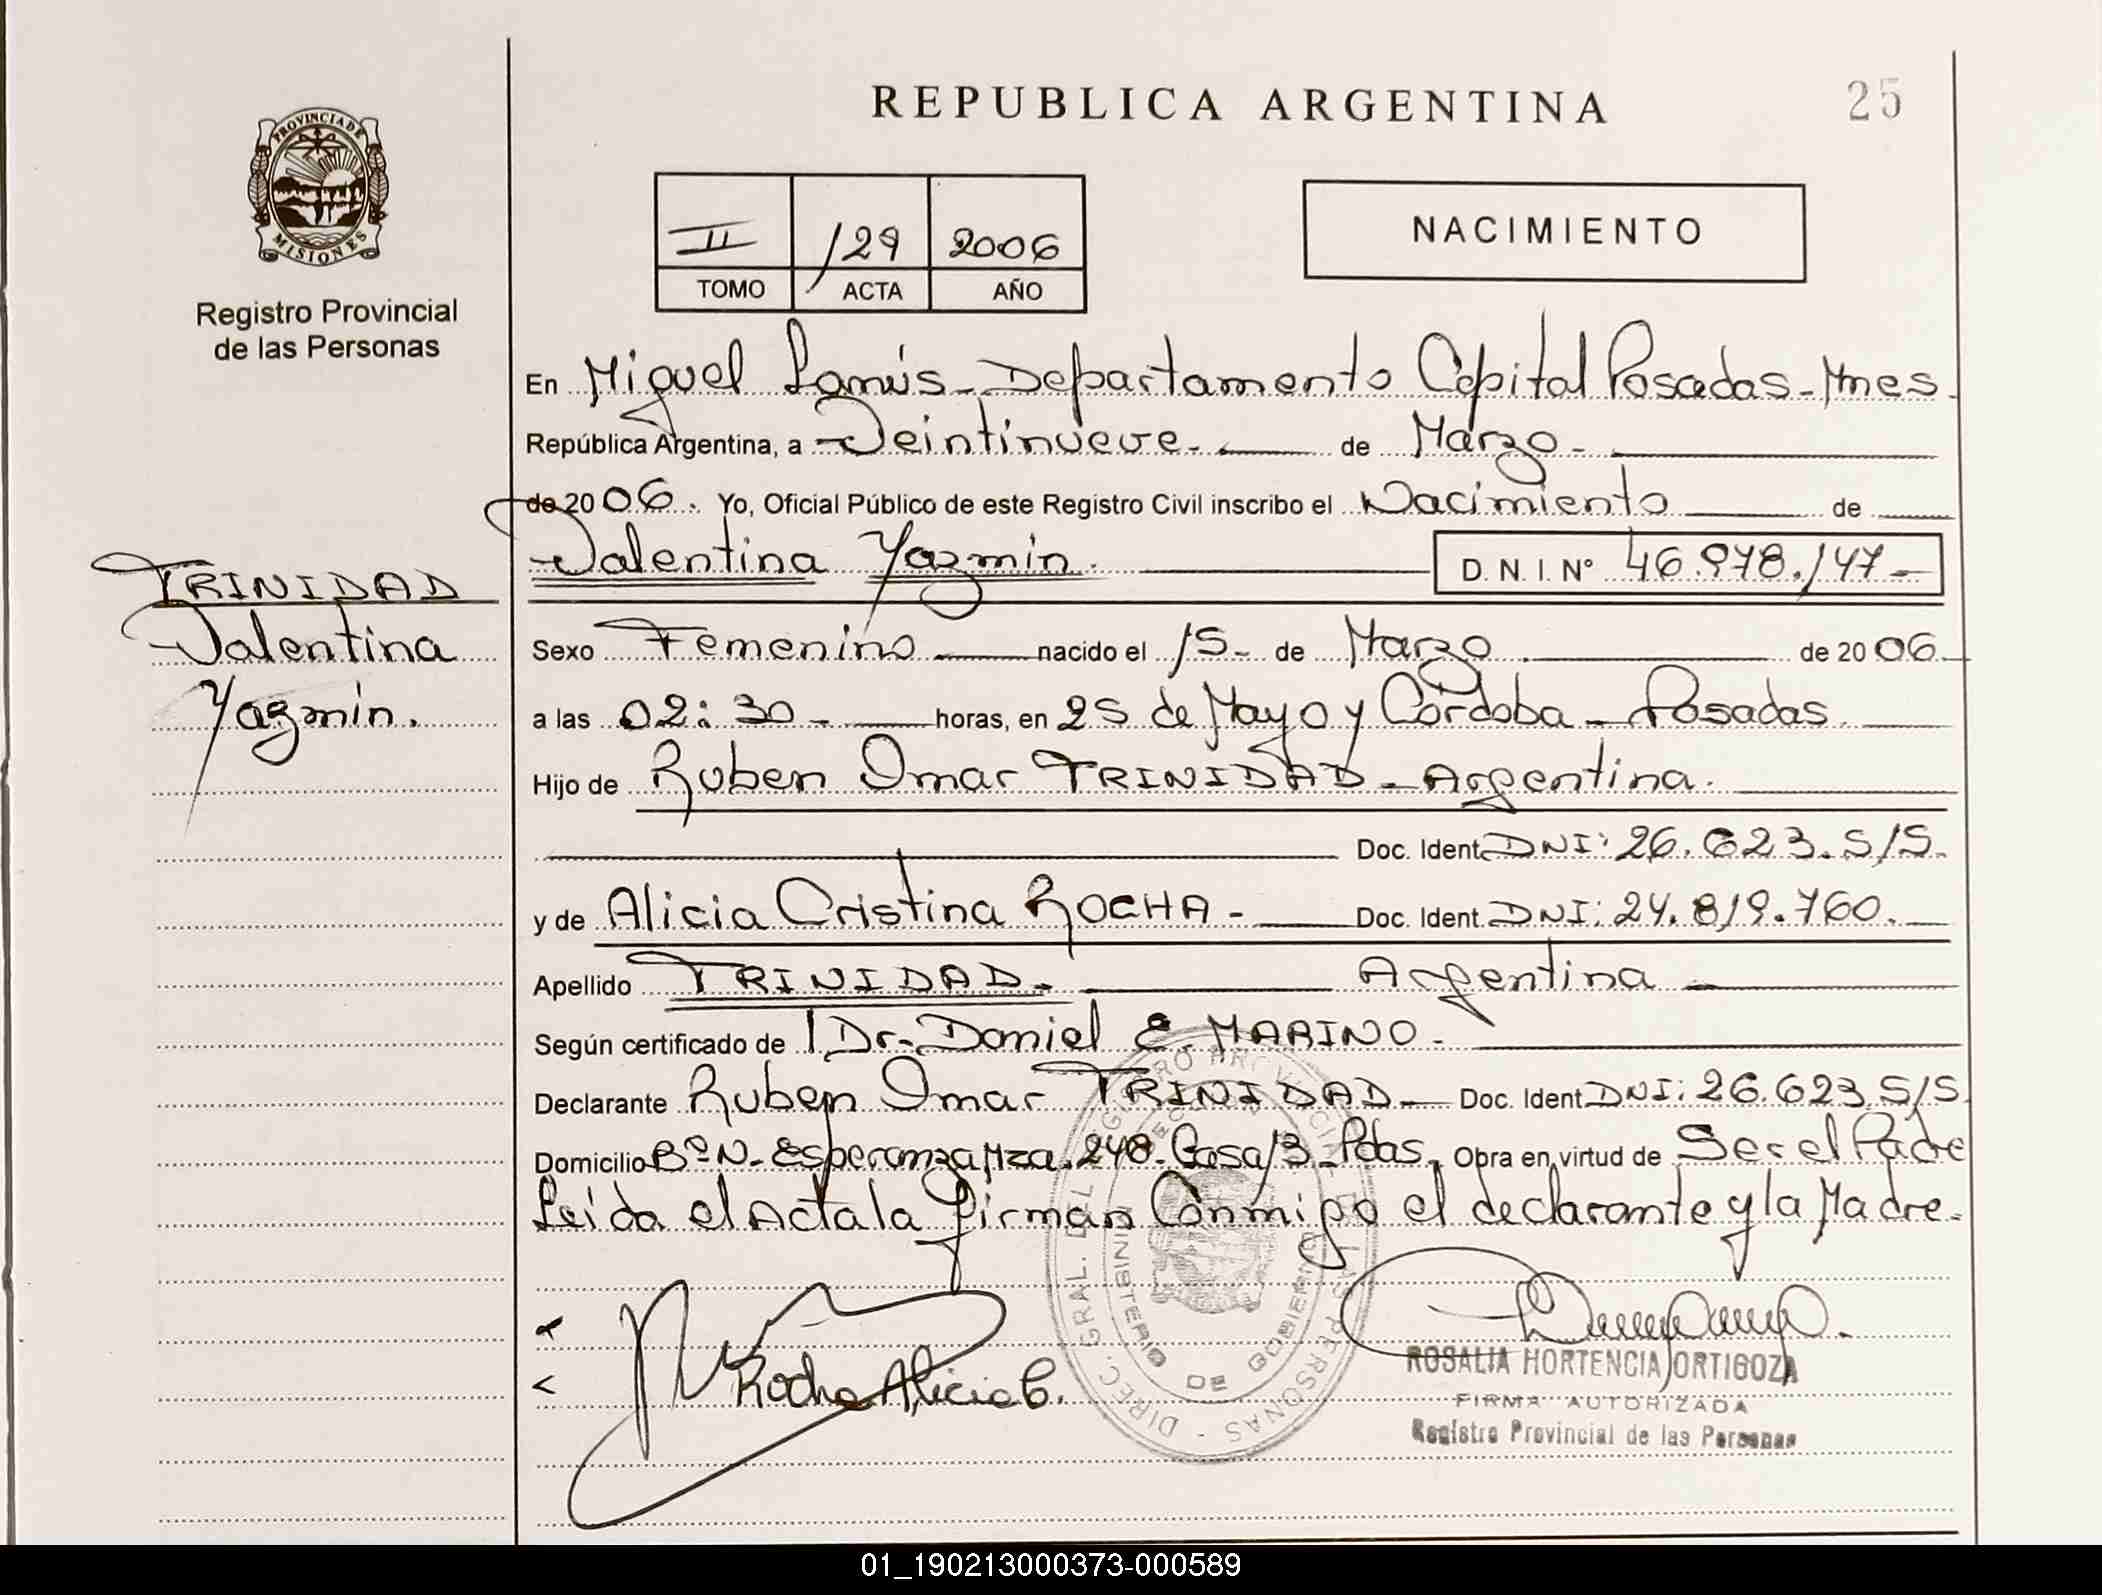 REPUBLICA ARGENTINA
25
PROVINCIA DE
MISIONES
Registro Provincial
de las Personas
II 129 2006
TOMO ACTA AÑO
NACIMIENTO
En Miguel Lanús - Departamento Capital Posadas - Mnes.
República Argentina, a Veintinueve. de Marzo -
de 2006. Yo, Oficial Público de este Registro Civil inscribo el Nacimiento de
Valentina Yazmin. D. N. I. N° 46.978.147 -
TRINIDAD
Valentina
Yazmin.
Sexo Femenino nacido el 15 - de Marzo de 2006
a las 02:30 - horas, en 25 de Mayo y Córdoba - Posadas.
Hijo de Ruben Omar TRINIDAD - Argentina.
Doc. Ident. DNI: 26.623.515.
y de Alicia Cristina ROCHA - Doc. Ident. DNI: 24.819.760.
Apellido TRINIDAD - Argentina
Según certificado de Dr. Daniel E. MARINO -
Declarante Ruben Omar TRINIDAD - Doc. Ident DNI: 26.623.515
Domicilio Bº N. Esperanza Mza. 248 - Casa 13 - Pdas. Obra en virtud de Ser el Padre
Leida el Acta la firman Conmigo el declarante y la Madre.
Rocha Alicia C.
DIREC. GRAL. DEL REGISTRO PROVINCIAL DE LAS PERSONAS -
MINISTERIO DE GOBIERNO
ROSALIA HORTENCIA ORTIGOZA
FIRMA AUTORIZADA
Registro Provincial de las Personas
01_190213000373-000589